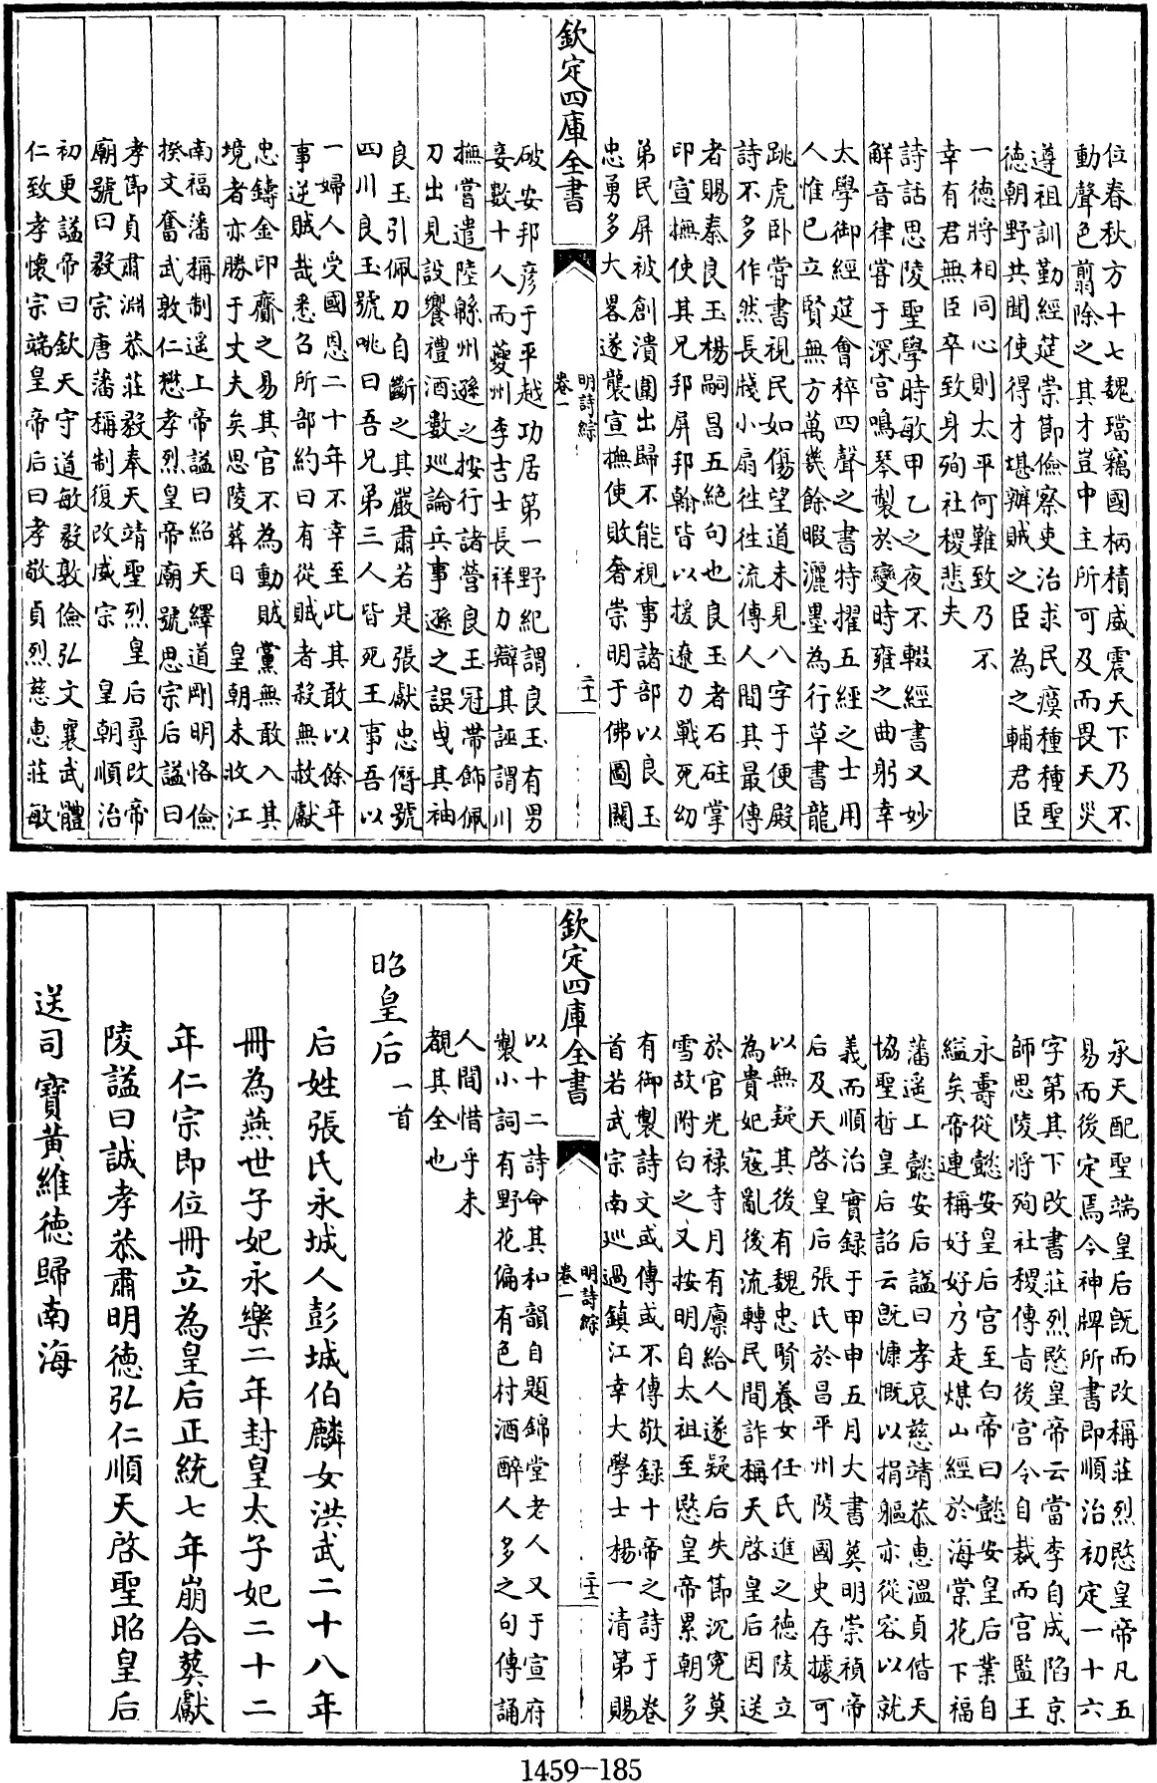 位春秋方十七魏璫竊國柄積威震天下乃不
動聲色翦除之其才豈中主所可及而畏天災
遵祖訓勤經莚崇節儉察吏治求民瘼種種聖
德朝野共聞使得才堪辦賊之臣為之輔君臣
一德將相同心則太平何難致乃不
幸有君無臣卒致身殉社稷悲夫
詩話思陵聖學時敏甲乙之夜不輟經書又妙
解音律嘗于深宫鳴琴製於變時雍之曲躬幸
太學御經莚會稡四聲之書特擢五經之士用
人惟已立賢無方萬幾餘暇灑墨為行草書龍
跳虎卧嘗書視民如傷望道未見八字于便殿
詩不多作然長牋小扇徃徃流傳人間其最傳
者賜秦良玉楊嗣昌五絶句也良玉者石砫掌
印宣撫使其兄邦屏邦翰皆以援遼力戰死幼
弟民屏被創潰圍出歸不能視事諸部以良玉
忠勇多大畧遂襲宣撫使敗奢崇明于佛圖關
欽定四庫全書
明詩綜
卷一
二十一
破安邦彦于平越功居第一野紀謂良玉有男
妾數十人而夔州李吉士長祥力辯其誣謂川
撫嘗遣陸緜州遜之按行諸營良玉冠帶飾佩
刀出見設饗禮酒數廵論兵事遜之誤曵其袖
良玉引佩刀自斷之其嚴肅若是張獻忠僭號
四川良玉號咷曰吾兄弟三人皆死王事吾以
一婦人受國恩二十年不幸至此其敢以餘年
事逆賊哉悉召所部約曰有從賊者殺無赦獻
忠鑄金印齎之易其官不為動賊黨無敢入其
境者亦勝于丈夫矣思陵葬日 皇朝未收江
南福藩稱制遥上帝諡曰紹天繹道剛明恪儉
揆文奮武敦仁懋孝烈皇帝廟號思宗后諡曰
孝節貞肅淵恭莊毅奉天靖聖烈皇后尋改帝
廟號曰毅宗唐藩稱制復改威宗 皇朝順治
初更諡帝曰欽天守道敏毅敦儉弘文襄武體
仁致孝懷宗端皇帝后曰孝敬貞烈慈惠莊敏
承天配聖端皇后既而改稱莊烈愍皇帝凡五
易而後定焉今神牌所書即順治初定一十六
字第其下改書莊烈愍皇帝云當李自成陷京
師思陵將殉社稷傳㫖後宫令自裁而宫監王
永壽從懿安皇后宫至白帝曰懿安皇后業自
縊矣帝連稱好好乃走煤山經於海棠花下福
藩遥上懿安后諡曰孝哀慈靖恭惠温貞偕天
協聖哲皇后詔云既慷慨以捐軀亦從容以就
義而順治實録于甲申五月大書葬明崇禎帝
后及天啓皇后張氏於昌平州陵國史存據可
以無疑其後有魏忠賢養女任氏進之德陵立
為貴妃寇亂後流轉民間詐稱天啓皇后因送
於官光禄寺月有廪給人遂疑后失節沉寃莫
雪故附白之又按明自太祖至愍皇帝累朝多
有御製詩文或傳或不傳敬録十帝之詩于卷
首若武宗南廵過鎮江幸大學士楊一清第賜
欽定四庫全書
明詩綜
卷一
二十二
以十二詩命其和韻自題錦堂老人又于宣府
製小詞有野花偏有色村酒醉人多之句傳誦
人間惜乎未
覩其全也
昭皇后一首
后姓張氏永城人彭城伯麟女洪武二十八年
冊為燕世子妃永樂二年封皇太子妃二十二
年仁宗即位冊立為皇后正統七年崩合葬獻
陵諡曰誠孝恭肅明德弘仁順天啓聖昭皇后
送司寶黄維德歸南海
1459-185